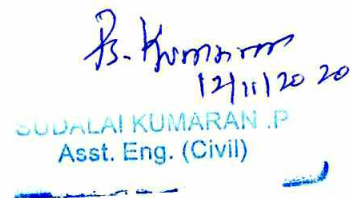 P. Kumaran
12/11/2020
SUDALAI KUMARAN .P
Asst. Eng. (Civil)